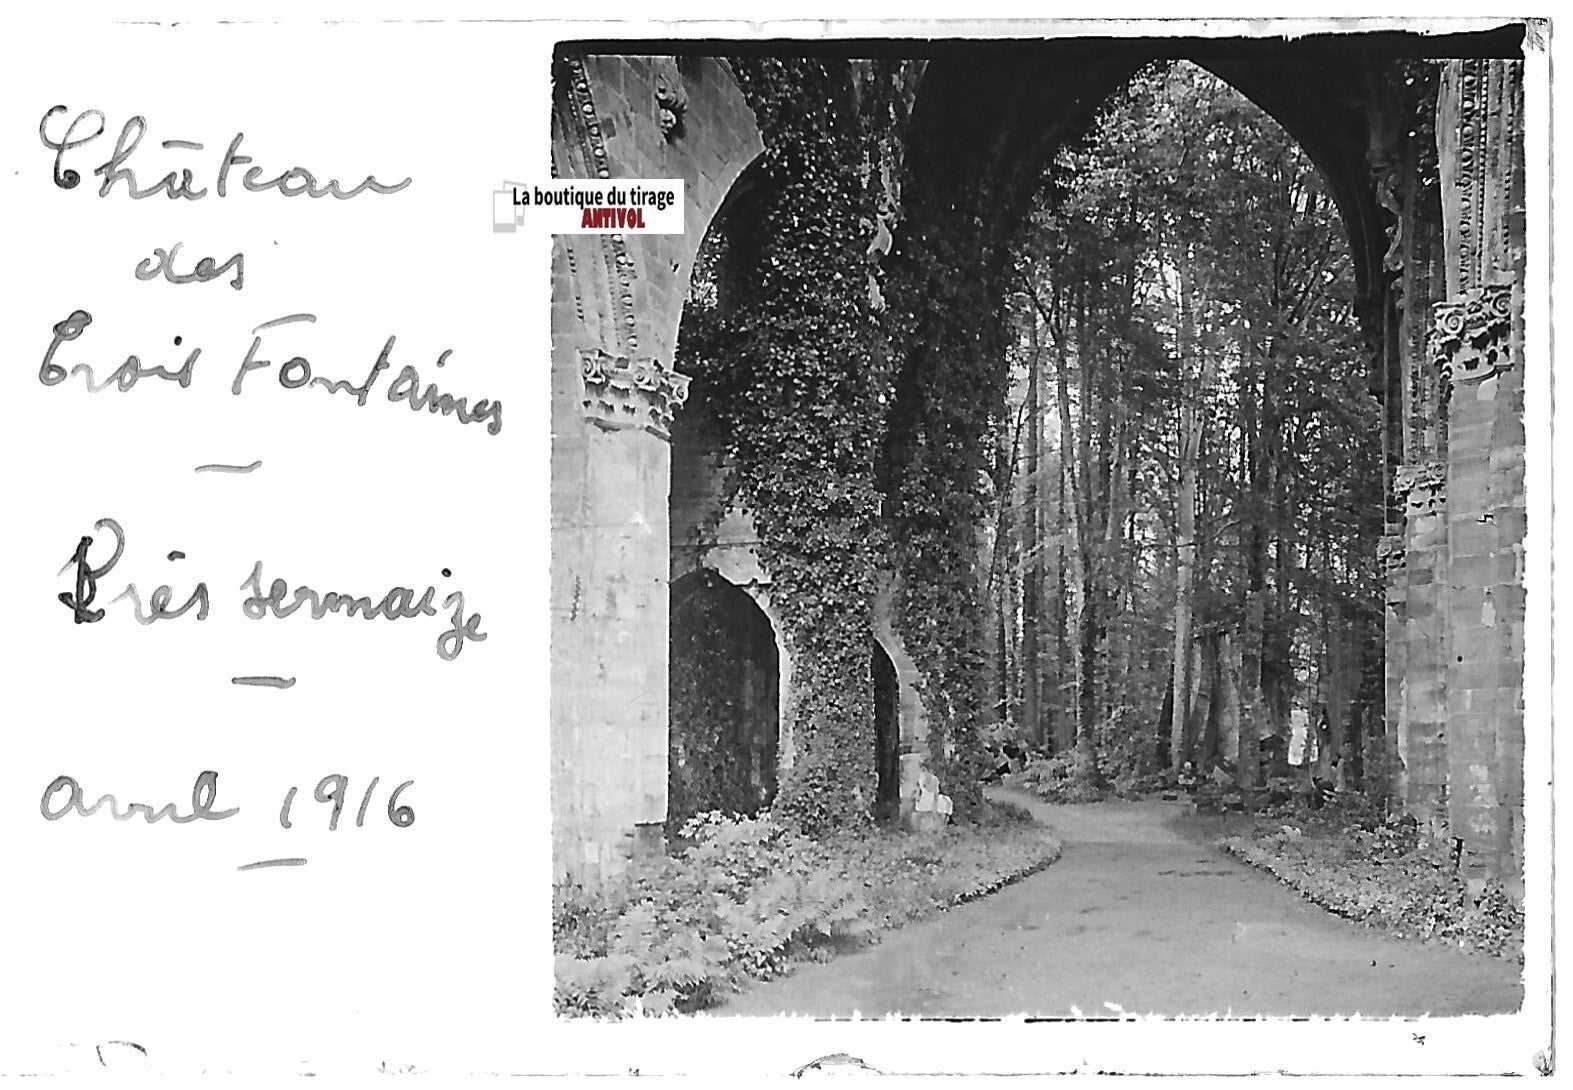 Château
des
Trois Fontaines
Près sermaize
avril 1916
La boutique du tirage
ANTIVOL